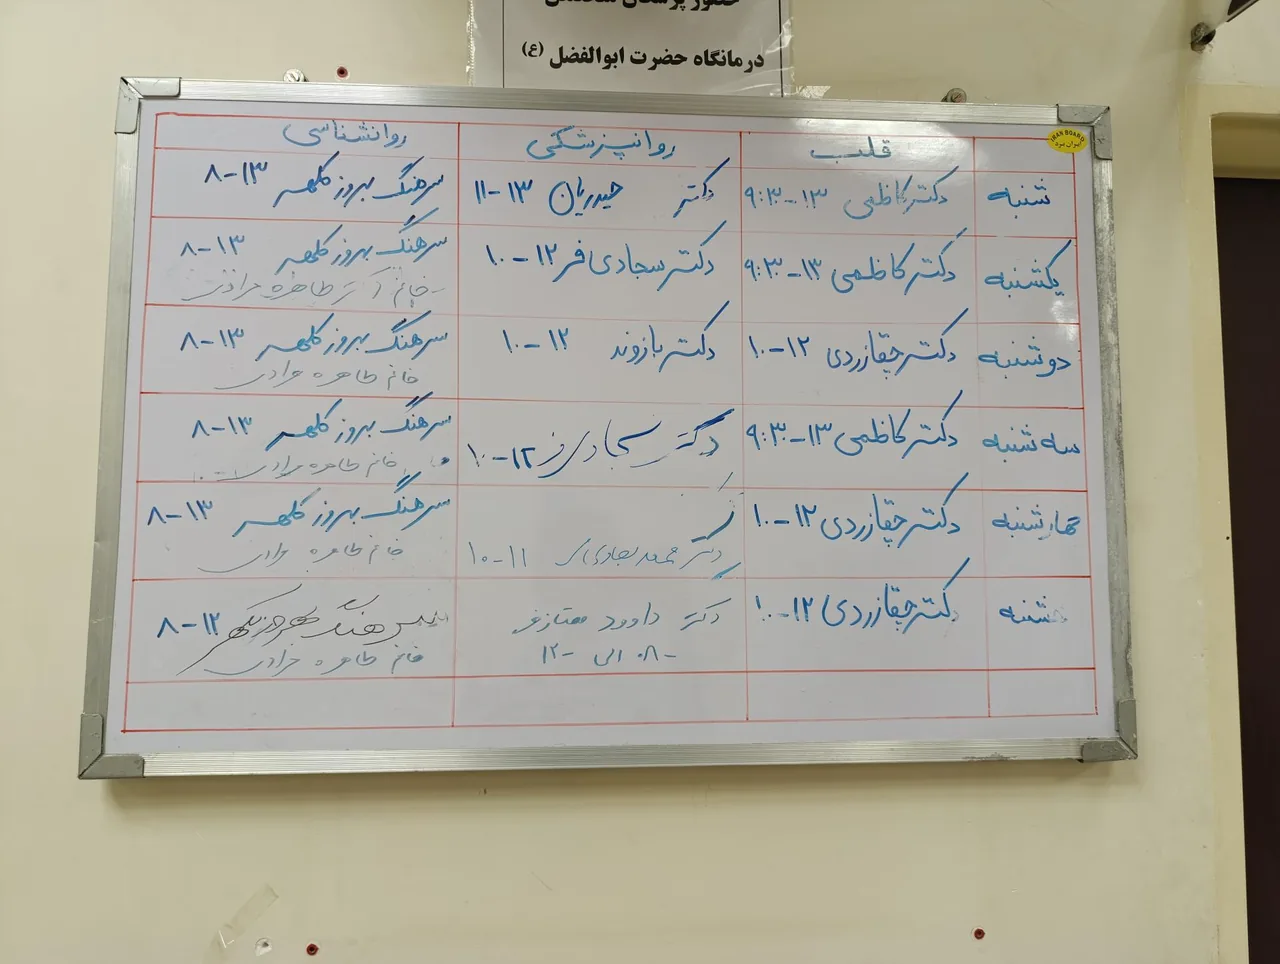 حضور پزشکان متخصص
درمانگاه حضرت ابوالفضل (ع)
IRAN BOARD
ایران برد
قلب روانپزشکی روانشناسی
شنبه دکتر کاظمی ۱۳-۹:۳۰ دکتر حیدریان ۱۳-۱۱ سرهنگ بهروز کلهر ۱۳-۸
یکشنبه دکتر کاظمی ۱۳-۹:۳۰ دکتر سجادی فر ۱۲-۱۰ سرهنگ بهروز کلهر ۱۳-۸
خانم طاهره مرادی
دوشنبه دکتر چقازردی ۱۲-۱۰ دکتر بازوند ۱۲-۱۰ سرهنگ بهروز کلهر ۱۳-۸
خانم طاهره مرادی
سه شنبه دکتر کاظمی ۱۳-۹:۳۰ دکتر سجادی فر ۱۲-۱۰ سرهنگ بهروز کلهر ۱۳-۸
خانم طاهره مرادی
چهارشنبه دکتر چقازردی ۱۲-۱۰ سرهنگ بهروز کلهر ۱۳-۸
دکتر محمد ۱۱-۱۰ خانم طاهره مرادی
جشنبه دکتر چقازردی ۱۲-۱۰ دکتر داوود ممتازفر سرهنگ ۱۲-۸
۰۸ الی ۱۲ خانم طاهره مرادی